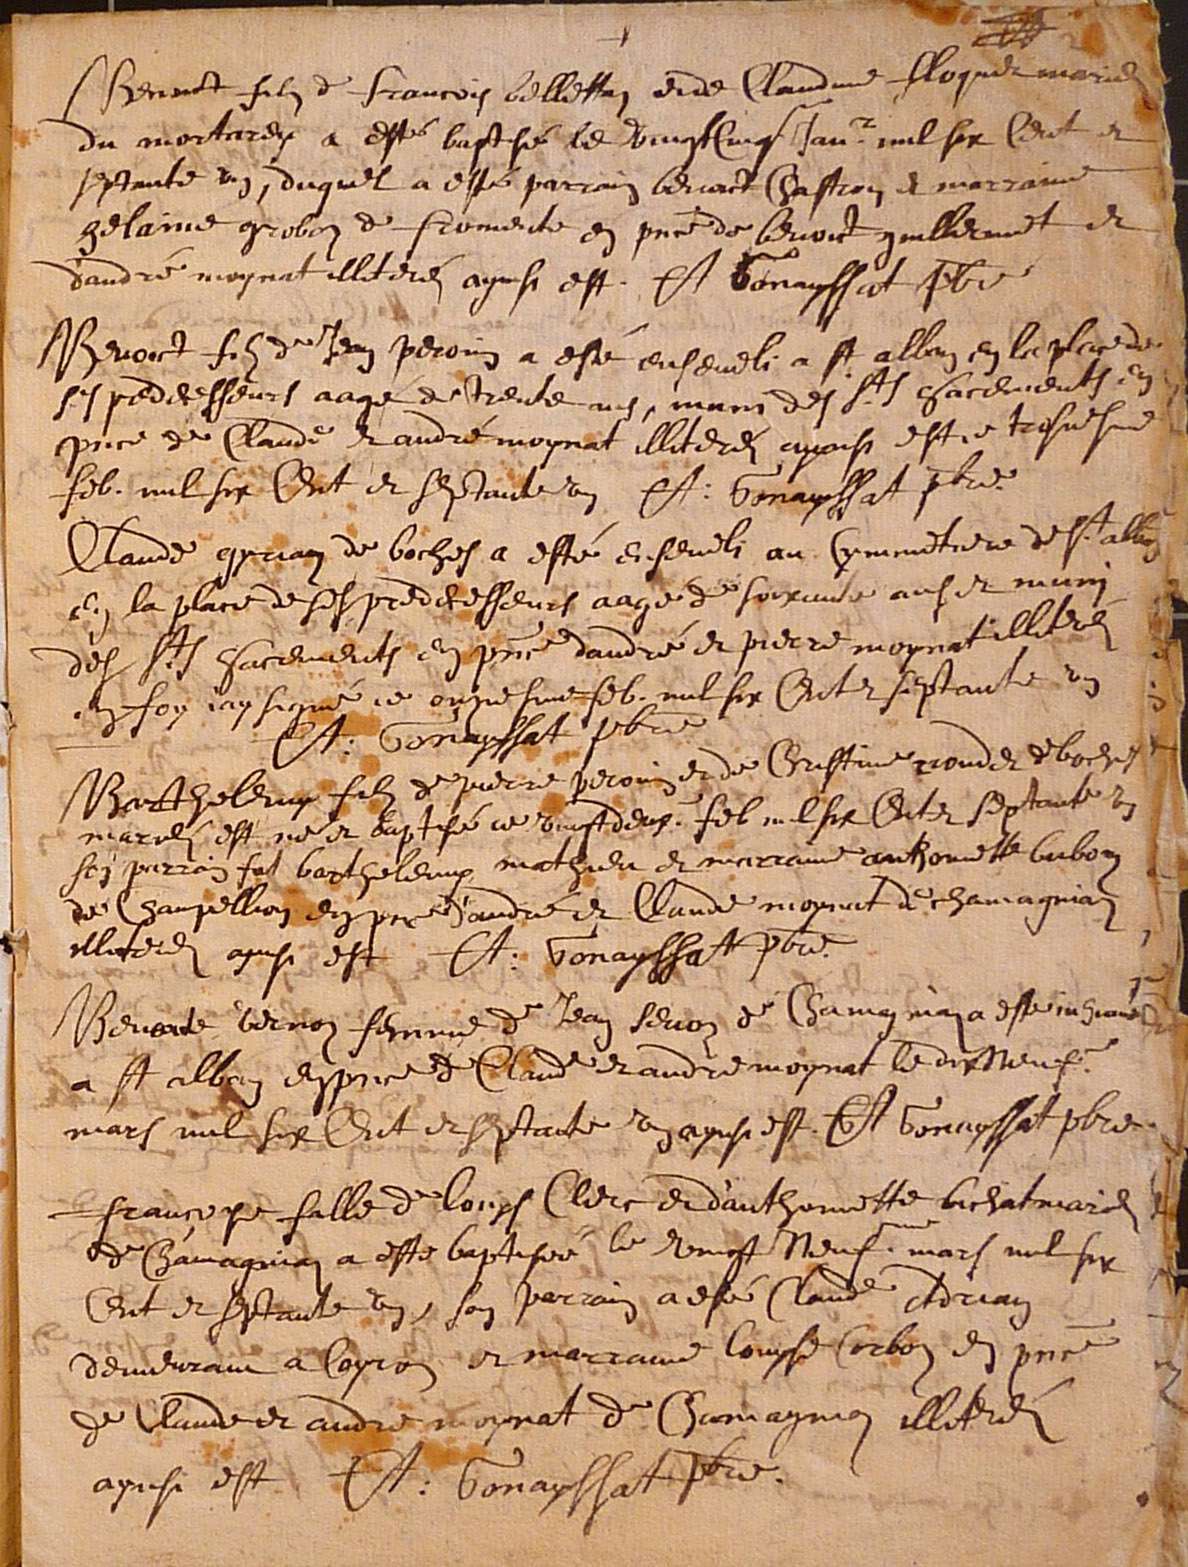 Benoict filz de francois bellettaz et de Claudine floquet mariés
du mortarey a esté baptisé le vingt Cinq Janr mil six Cent et
septante un, duquel a esté parrain benoict Chastron et marraine
gelaine grobon de fromente en pnce de benoict guillermet et
d'andré moynat illiterés aynsi est. Et. Gonayssat pbre
Benoict filz de Jean peroin a esté enseveli a st alban en la place de
ses predecesseurs aagé de trente ans, muni des sts Sacrements en
pnce de Claude et andré moynat illiterés aynsi est ce troisiesme
feb. mil six Cent et septante un Et: Gonayssat pbre.
Claude gyrian de boches a esté enseveli au Cymmetiere de st alban
en la place de ses predecesseurs aagé de soixante ans et muni
des sts Sacrements en pnce d'andré et pierre moynat illiterés
en foy j'ay signé ce onziesme feb. mil six Cent et septante un
Et: Gonayssat pbre
Barthelemy filz de pierre peroin et de Christine rondet de boches
mariés est né et baptisé ce vingt deux feb mil six Cent et septante un
son parrain fut barthelemy mathieu et marraine anthoinette bubon
de Champellion en pnce d'andré et Claude moynat de chamagnian
illiterés aynsi est Et: Gonayssat pbre.
Benoite vernon femme de Jean servon de Chamagnian a esté inhumée
a st alban en pnce de Claude et andre moynat le dix Neuf
mars mil six Cent et septante un aynsi est. Et Gonayssat pbre.
françoise fille de Louys Clerc et d'anthoinette bichat mariés
de Chamagnian a esté baptisée le vingt Neufme mars mil six
Cent et septante un, son parrain a esté Claude Adrian
demeurant a Loyron et marraine Louyse Corbon en pnce
de Claude et andre moynat de Chamagnian illiterés
aynsi est Et: Gonayssat pbre.